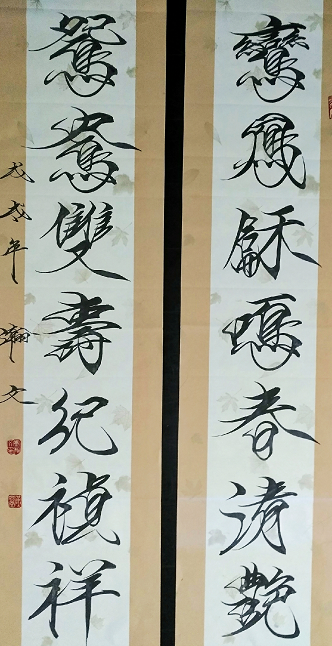 鸞鳳龢鳴春艷
鴛鴦雙壽紀禎祥
戊戌年 瀚文